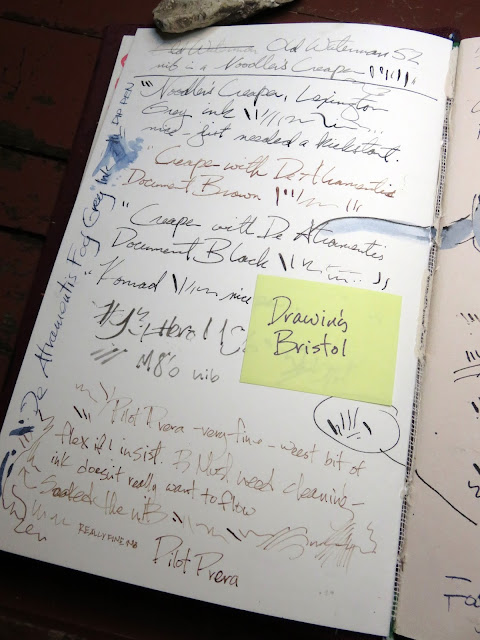 Old Waterman 52
nib in a Noodler's Creaper
"Noodler's Creaper, Lexington
Grey ink
nice - just needed a kickstart.
"Creape with De Atramentis
Document Brown
"Creape with De Atramentis
Document Black
"Konrad nice
Hero
M86 nib
Drawing
Bristol
Pilot Prera - very fine - weest bit of
flex if I insist. Must need cleaning -
ink doesn't really want to flow
the nib
REALLY FINE NIB
Pilot Prera
De Atramentis Fog Grey Ink DIP PEN